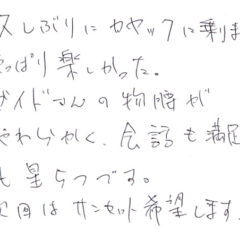 久しぶりにカヤックに乗りま
やっぱり楽しかった。
ガイドさんの物腰が
やわらかく、会話も満足
も星5つです。
次回はサンセット希望します